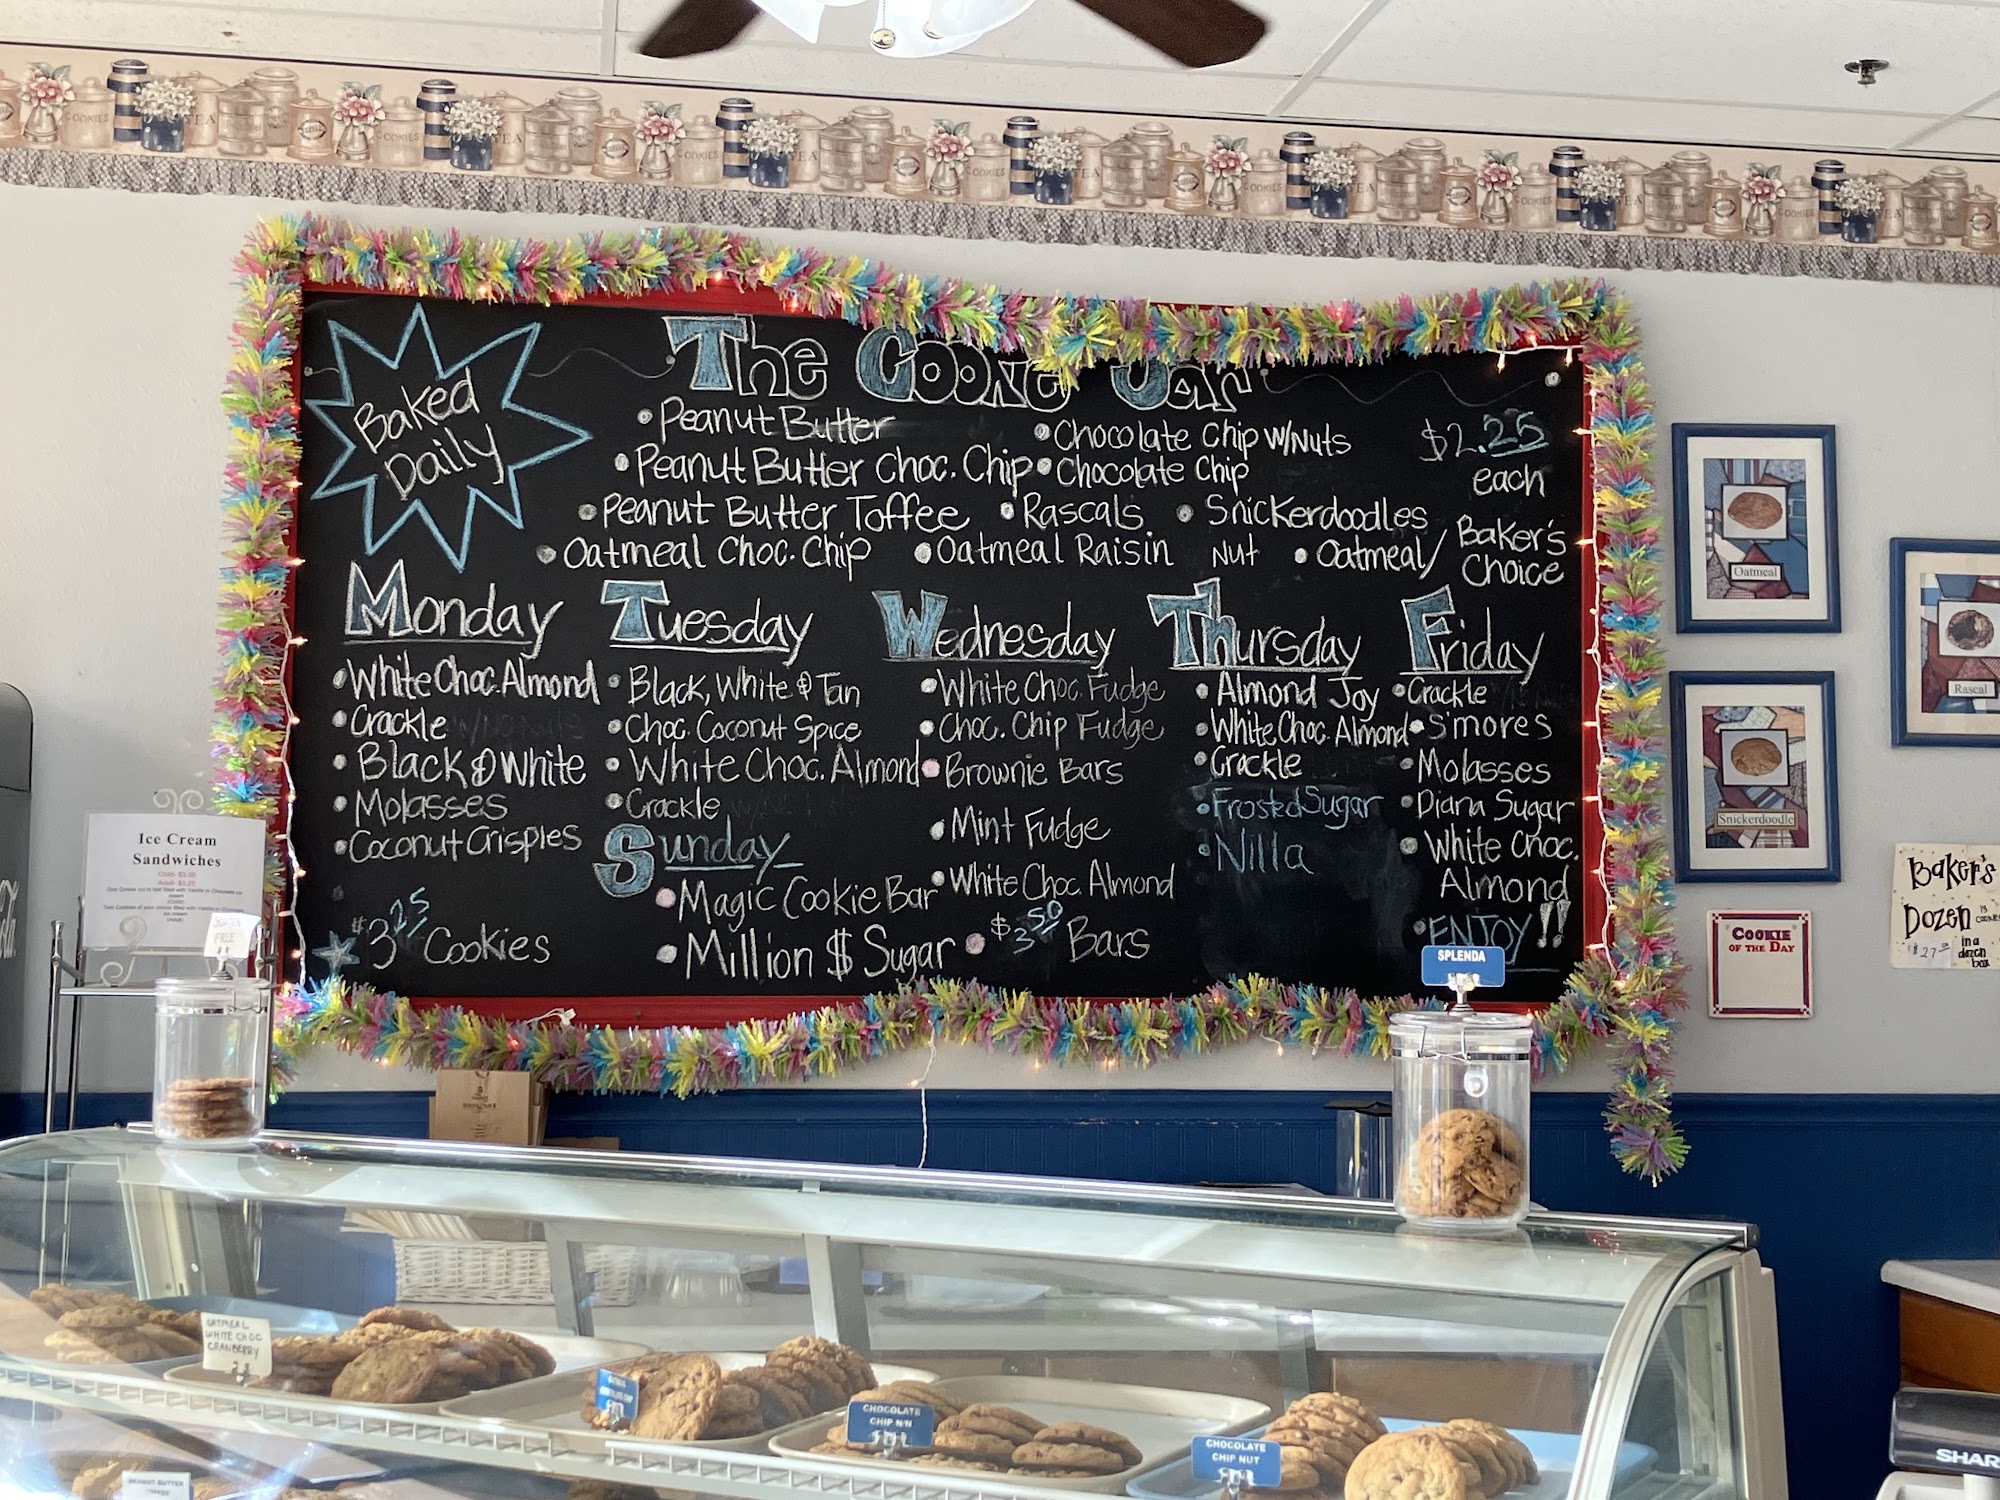 The Cookie Jar
Baked
Daily
• Peanut Butter
• Chocolate Chip w/Nuts
$2.25
each
• Peanut Butter Choc. Chip
• Chocolate Chip
• Peanut Butter Toffee
• Rascals
• Snickerdoodles
• Oatmeal Choc. Chip
• Oatmeal Raisin Nut
• Oatmeal/
Baker's
Choice
Monday
• White Choc. Almond
• Crackle
• Black & White
• Molasses
• Coconut Crispies
Tuesday
• Black, White & Tan
• Choc. Coconut Spice
• White Choc. Almond
• Crackle
Sunday
• Magic Cookie Bar
• Million $ Sugar
Wednesday
• White Choc. Fudge
• Choc. Chip Fudge
• Brownie Bars
• Mint Fudge
• White Choc Almond
Thursday
• Almond Joy
• White Choc. Almond
• Crackle
• Frosted Sugar
• Nilla
Friday
• Crackle
• S'mores
• Molasses
• Diana Sugar
• White Choc.
Almond
• ENJOY!!
$3.25 Cookies
• $3.50 Bars
Ice Cream
Sandwiches
Child- $3.50
Adult- $5.25
GLUTEN
FREE
SPLENDA
Oatmeal
Rascal
Snickerdoodle
COOKIE
OF THE DAY
Baker's
Dozen is
in a
OATMEAL
WHITE CHOC
CRANBERRY
CHOCOLATE
CHIP N/N
CHOCOLATE
CHIP NUT
PEANUT BUTTER
SHAR